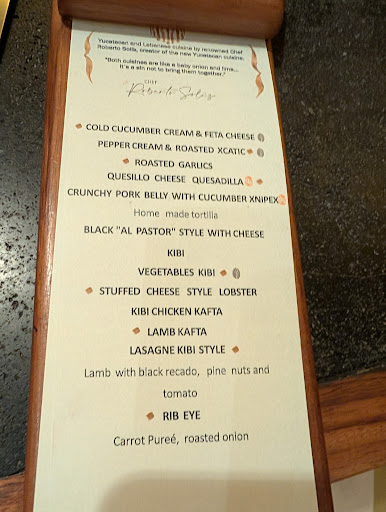 Yucatecan and Lebanese cuisine by renowned Chef
Roberto Solís, creator of the new Yucatecan cuisine.
"Both cuisines are like a baby onion and lime...
It's a sin not to bring them together."
CHEF
Roberto Solís
COLD CUCUMBER CREAM & FETA CHEESE
PEPPER CREAM & ROASTED XCATIC
ROASTED GARLICS
QUESILLO CHEESE QUESADILLA
CRUNCHY PORK BELLY WITH CUCUMBER XNIPEX
Home made tortilla
BLACK "AL PASTOR" STYLE WITH CHEESE
KIBI
VEGETABLES KIBI
STUFFED CHEESE STYLE LOBSTER
KIBI CHICKEN KAFTA
LAMB KAFTA
LASAGNE KIBI STYLE
Lamb with black recado, pine nuts and
tomato
RIB EYE
Carrot Pureé, roasted onion